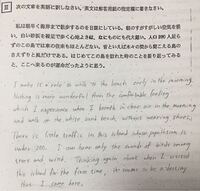 Ⅱ 次の文章を英語に訳しなさい。英文は解答用紙の指定欄に書きなさい。
私は朝早く海岸まで散歩するのを日課にしている。朝のすがすがしい空気を吸い、白い砂浜を裸足で歩く心地よさは、なにものにも代え難い。人口200人足らずのこの島では車の往来もほとんどない。音といえば木々の間から聞こえる鳥のさえずりと風だけである。はじめてこの島を訪れた時のことを振り返ってみると、ここへ来るのが運命だったように思う。
I make it a rule to walk to the beach early in the morning.
Nothing is more wonderful than the comfortable feeling
which I experience when I breath in clear air in the morning
and walk on the white sand beach without wearing shoes.
There is little traffic in this island whose population is
under 200. I can hear only the sounds of birds among
trees and wind. Thinking again about when I visited
this island for the first time, it seems to be a destiny
that I came here.